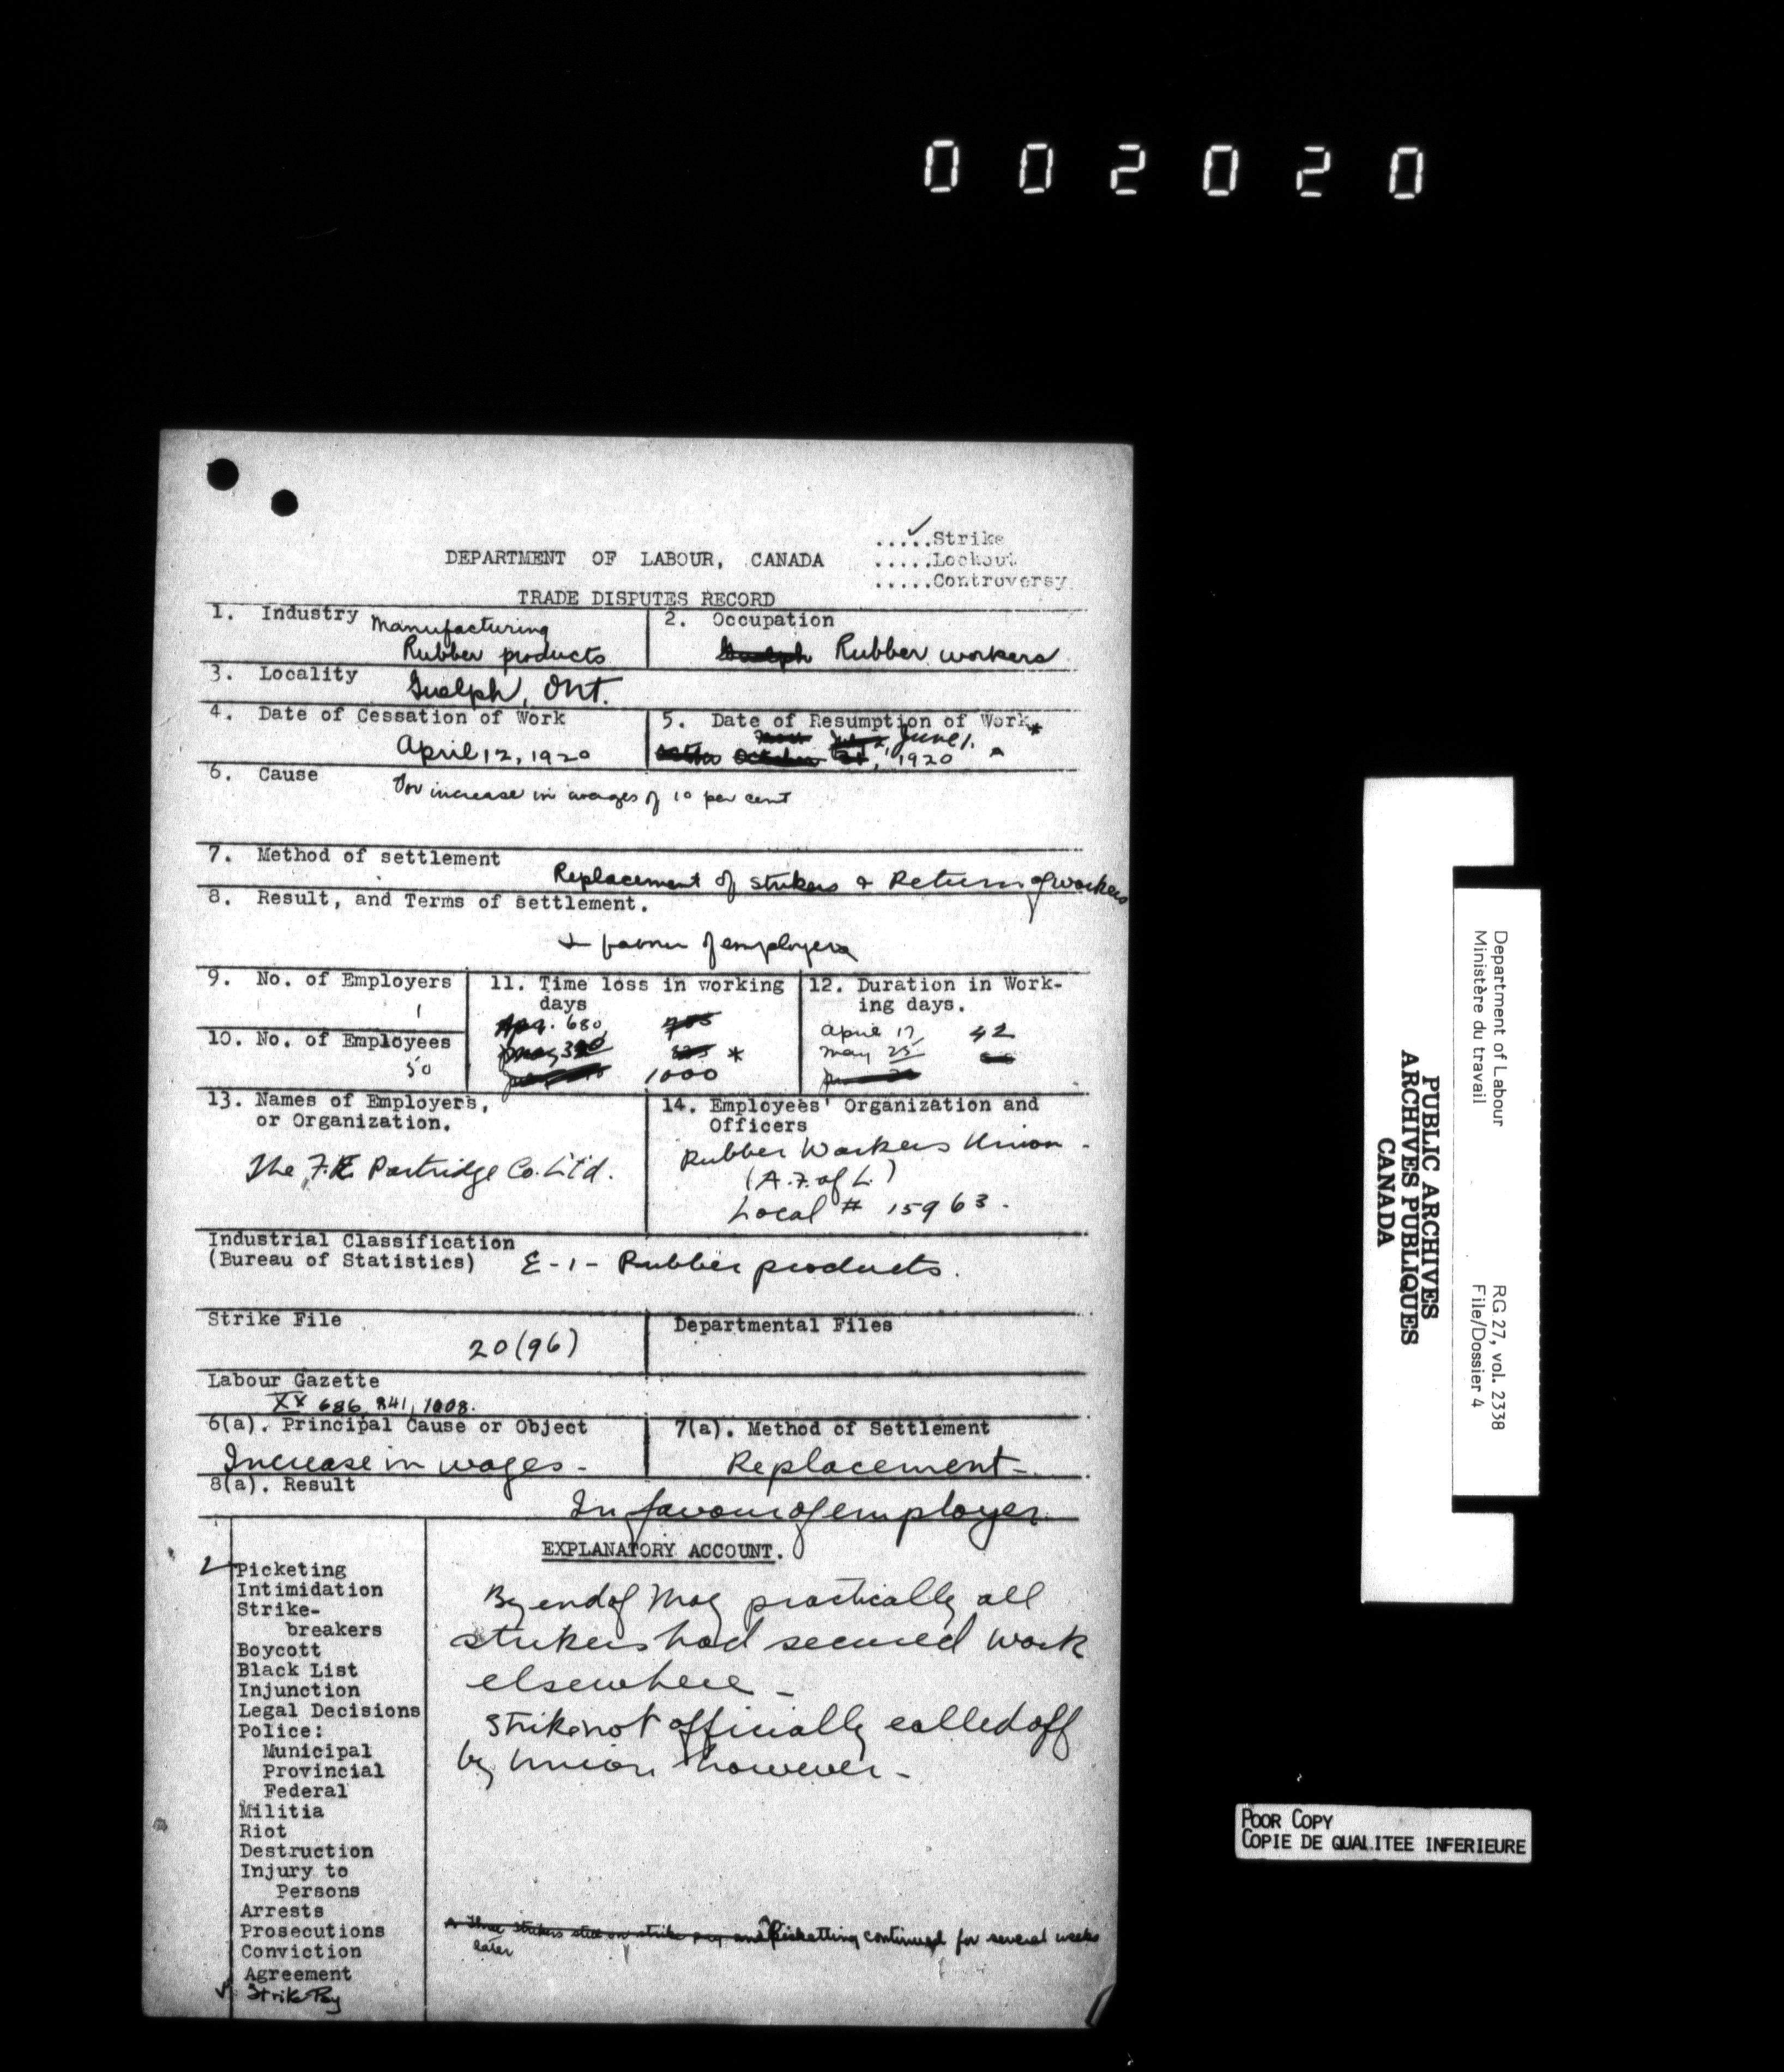 002020
.....Strike
DEPARTMENT OF LABOUR, CANADA
.....Lockout
.....Controversy
TRADE DISPUTES RECORD
1. Industry Manufacturing
Rubber products
2. Occupation
Guelph Rubber workers
3. Locality
Guelph, Ont.
4. Date of Cessation of Work
April 12, 1920
5. Date of Resumption of Work*
June 1.
October 1920
6. Cause
For increase in wages of 10 per cent
7. Method of settlement
Replacement of strikers & Return of workers
8. Result, and Terms of settlement.
favour of employers
9. No. of Employers
1
10. No. of Employees
50
11. Time loss in working
days
Apr. 680
May 320
*
1000
12. Duration in Work-
ing days.
April 17 42
May 25
13. Names of Employers,
or Organization.
The F.E. Partridge Co. Ltd.
14. Employees' Organization and
Officers
Rubber Workers Union -
(A.F. of L.)
Local # 15963.
Industrial Classification
(Bureau of Statistics) E-1- Rubber products.
Strike File
20(96)
Departmental Files
Labour Gazette
XX 686, 841, 1008.
6(a). Principal Cause or Object
Increase in wages -
7(a). Method of Settlement
Replacement -
8(a). Result
In favour of employer
EXPLANATORY ACCOUNT.
Picketing
Intimidation
Strike-
breakers
Boycott
Black List
Injunction
Legal Decisions
Police:
Municipal
Provincial
Federal
Militia
Riot
Destruction
Injury to
Persons
Arrests
Prosecutions
Conviction
Agreement
Strike Pay
By end of May practically all
strikers had secured work
elsewhere -
Strike not officially called off
by Union however -
Three strikers still on strike pay and Picketting continued for several weeks
later
Department of Labour
Ministère du travail
RG 27, vol. 2338
File/Dossier 4
PUBLIC ARCHIVES
ARCHIVES PUBLIQUES
CANADA
POOR COPY
COPIE DE QUALITEE INFERIEURE